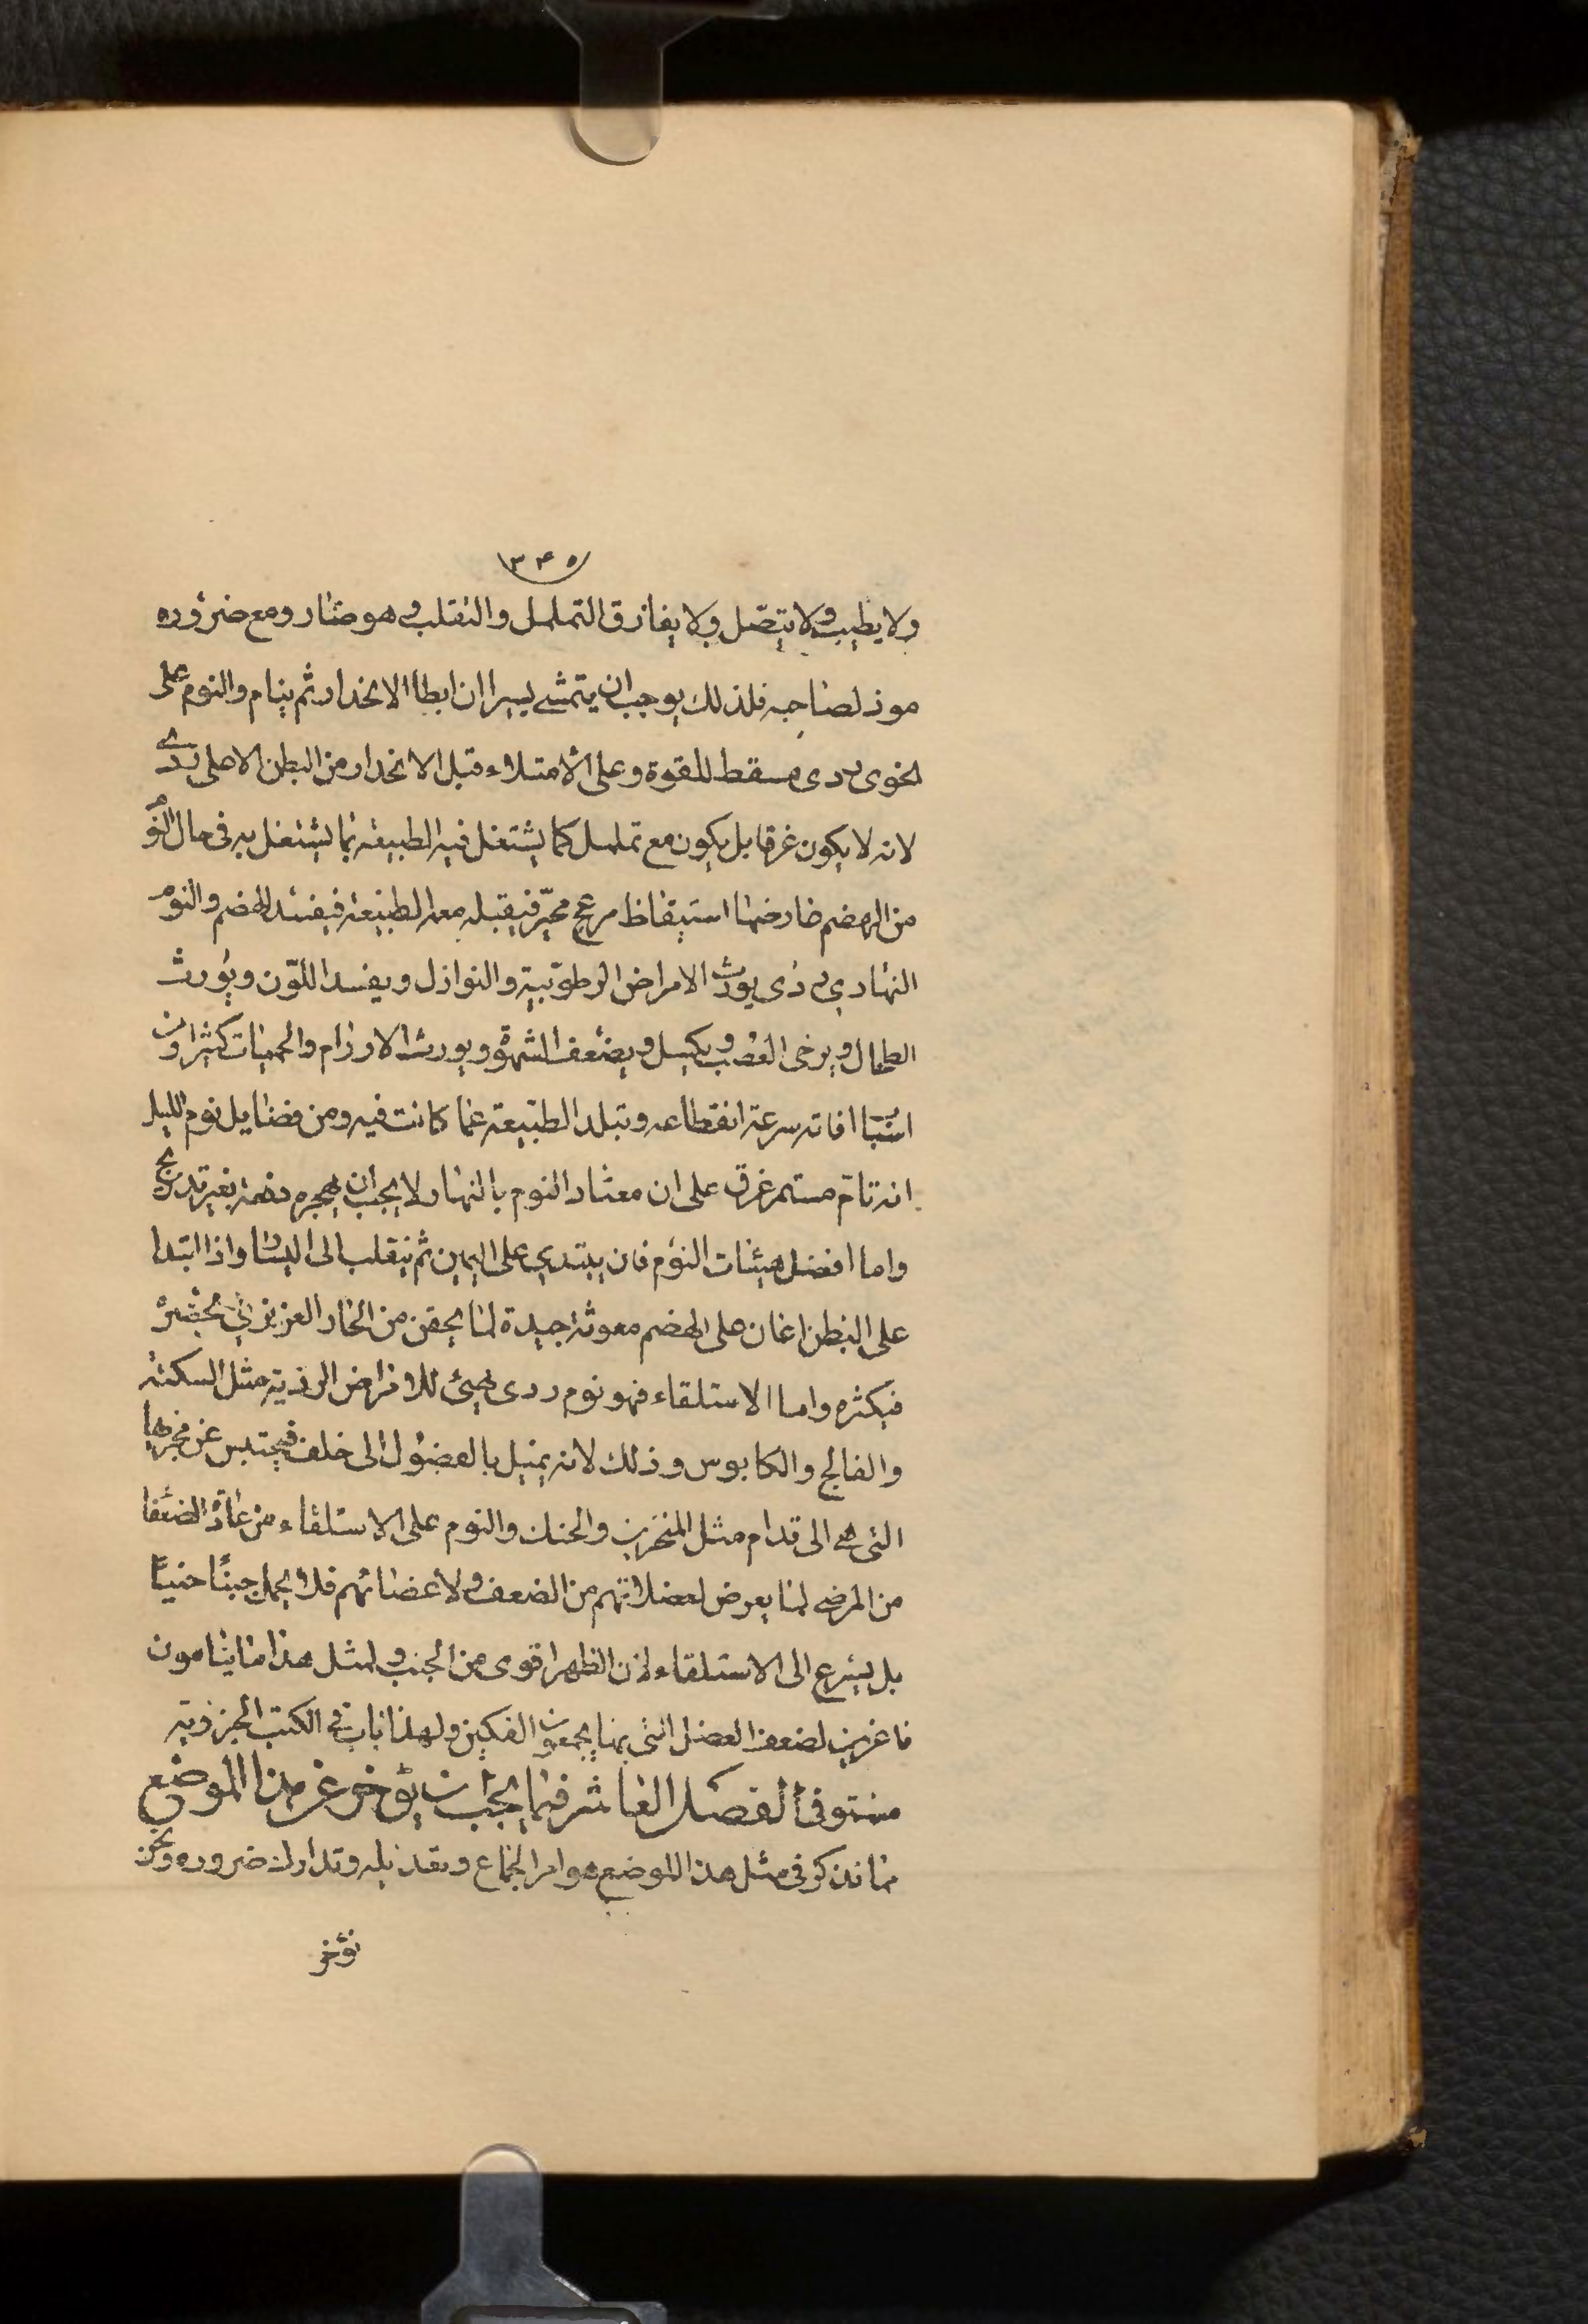 ٣٤٥
ولا يطيب ولا يتصل ولا يفارق التململ والتقلب وهو ضار ومع ضروره
موذ لصاحبه فلذلك يوجب ان يتمشى يسيرا ان ابطا الانحدار ثم ينام والنوم على
الخوى ردى مسقط للقوة وعلى الامتلاء قبل الانحدار من البطن الاعلى ردى
لانه لا يكون غرقا بل يكون مع تململ كما يشتغل فيه الطبيعة بما يشتغل به فى حال النوم
من الهضم عارضها استيقاظ مزعج محير فيقبله معه الطبيعة فيفسد الهضم والنوم
النهارى ردى يورث الامراض الرطوبية والنوازل ويفسد اللون ويورث
الطحال ويرخى العصب ويكسل ويضعف الشهوة ويورث الاورام والحميات كثيرا ومن
اسباب افاته سرعة انقطاعه وتبلد الطبيعة عما كانت فيه ومن فضايل نوم الليل
انه تام مستمر غرق على ان معتاد النوم بالنهار لا يجب ان يهجره دفعة بغير تدريج
واما افضل هيئات النوم فان يبتدى على اليمين ثم ينقلب الى اليسار واذا ابتدا
على البطن اعان على الهضم معونة جيدة لما يحقن من الحار الغريزى ويحصره
فيكثره واما الاستلقاء فهو نوم ردى يهيئ للامراض الردية مثل السكتة
والفالج والكابوس وذلك لانه يميل بالفضول الى خلف فيحتبس عن مجريها
التى هى الى قدام مثل المنخرين والحنك والنوم على الاستلقاء من عادة الضعفا
من المرضى لما يعرض لعضلاتهم من الضعف ولاعضائهم فلا يحمل جنبًا جنبًا
بل يسرع الى الاستلقاء لان الظهر اقوى من الجنب ولمثل هذا ما ينامون
فاغرين لضعف العضل التى بها يجمعون الفكين ولهذا باب فى الكتب الجزوية
مستوفى الفصل العاشر فيما يجب ان يوخر عن هذا الموضع
مما نذكر فى مثل هذا الموضع هو امر الجماع وتعديله وتدارك ضروره ونحن
نوخر